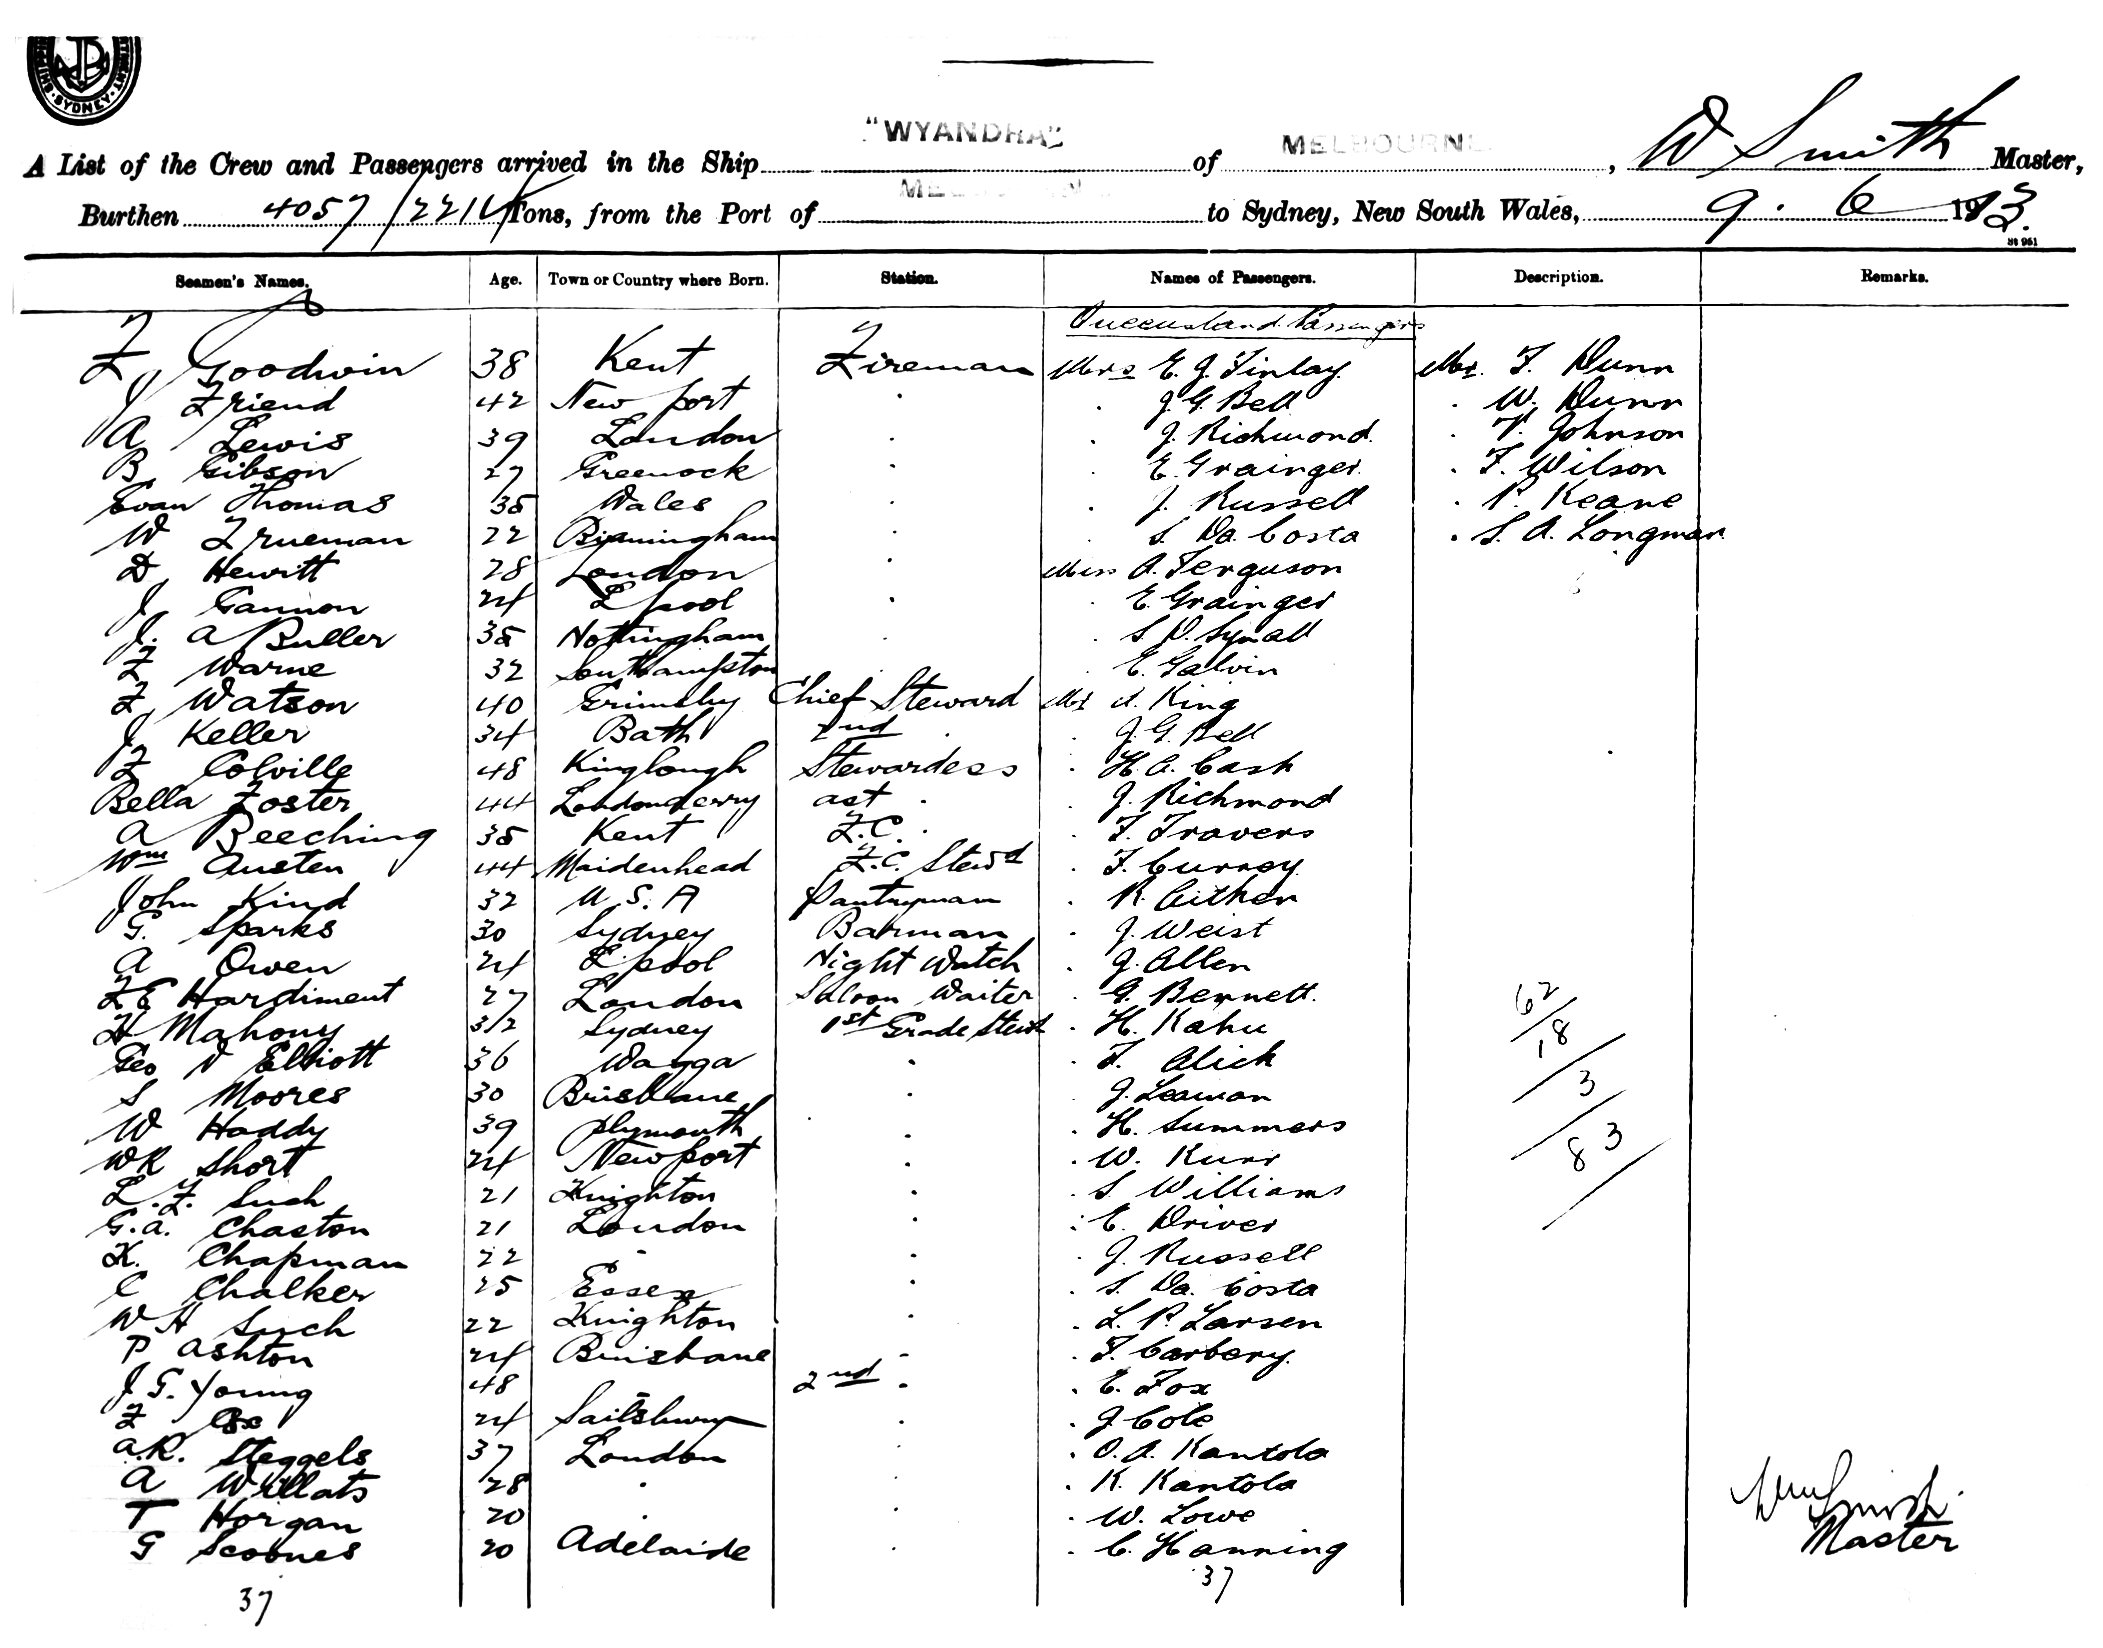 SYDNEY
"WYANDRA"
MELBOURNE
A List of the Crew and Passengers arrived in the Ship of , W Smith Master,
Burthen 4057/2216 Tons, from the Port of to Sydney, New South Wales, 9. 6 1913.
Seamen's Names. Age. Town or Country where Born. Station. Names of Passengers. Description. Remarks.
Queensland Passengers
F Goodwin 38 Kent Fireman Mrs E. J. Finlay Mr. F. Dunn
J Friend 42 New port . . J. G. Bell . W. Dunn
A Lewis 39 London . . J. Richmond . V. Johnson
B Gibson 27 Greenock . . E. Grainger . F. Wilson
Evan Thomas 35 Wales . . J. Russell . P. Keane
W Trueman 22 Birmingham . . S. Da Costa . S. A. Longman
D Hewitt 28 London . Miss A. Ferguson
J Gannon 24 L'pool . . E. Grainger
J. A Buller 35 Nottingham . .
F Warne 32 Southampton . . E. Galvin
F Watson 40 Grimsby Chief Steward Mr A. King
J Keller 34 Bath 2nd . . J. G. Bell
F Colville 48 Kinglough Stewardess . H. A. Cash
Bella Foster 44 Londonderry ast . . J. Richmond
A Beeching 35 Kent F.C. . . F. Travers
Wm Austen 44 Maidenhead F.C. Stewd . F. Currey
John Kind 32 U. S. A Pantryman . R. Aitken
G. Sparks 30 Sydney Barman . J. Weist
A Owen 24 L'pool Night Watch . J. Allen
F E Hardiment 27 London Saloon Waiter . G. Bennett. 62
H Mahony 32 Sydney 1st Grade Stewd . H. Kahu 18
Geo V Elliott 36 Wagga . . F. Alick
S Moores 30 Brisbane . J. Leaman 3
W Haddy 39 Plymouth . . H. Summers 83
WR Short 24 Newport . . W. Kurr
L. F. Such 21 Knighton . . S Williams
G. A. Chaston 21 London . . E. Driver
K. Chapman 22 " . . J. Russell
C Chalker 25 Essex . . S. Da. Costa
W H Such 22 Knighton . . L. P. Larsen
P Ashton 24 Brisbane . . F. Carbery.
J G. Young 48 2nd . . E. Fox
F Cox 24 . . J Cole
A.R. Steggels 37 London . . O. A. Kantola
A Willats 28 . . . K. Kantola
T Horgan 20 . . . W. Lowe
G Scoones 20 Adelaide . . C. Hanning
37 37
Wm Smith
Master